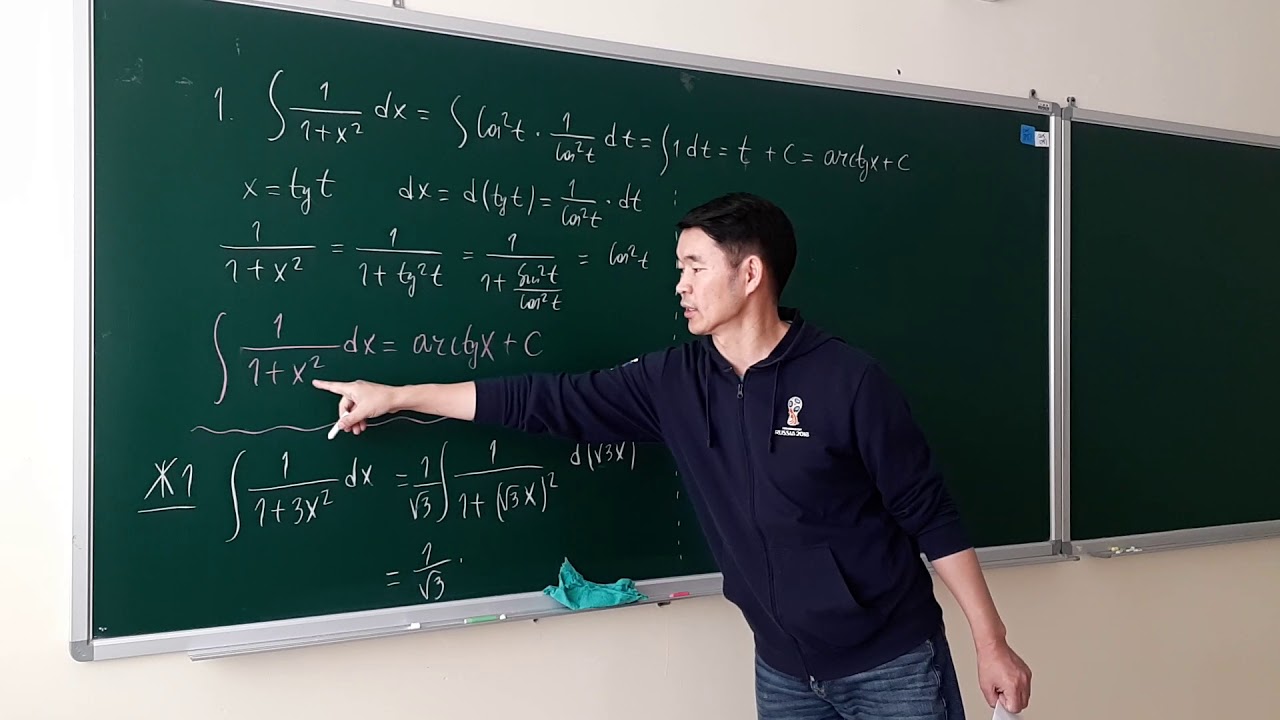 1. ∫ 1/(1+x²) dx = ∫ Cos²t · 1/Cos²t dt = ∫ 1 dt = t + C = arctgx + C
x = tg t   dx = d(tg t) = 1/Cos²t · dt
1/(1+x²) = 1/(1+tg²t) = 1/(1+Sin²t/Cos²t) = Cos²t
∫ 1/(1+x²) dx = arctgx + C
Ж1 ∫ 1/(1+3x²) dx = 1/√3 ∫ 1/(1+(√3x)²) d(√3x)
= 1/√3 ·
RUSSIA 2018